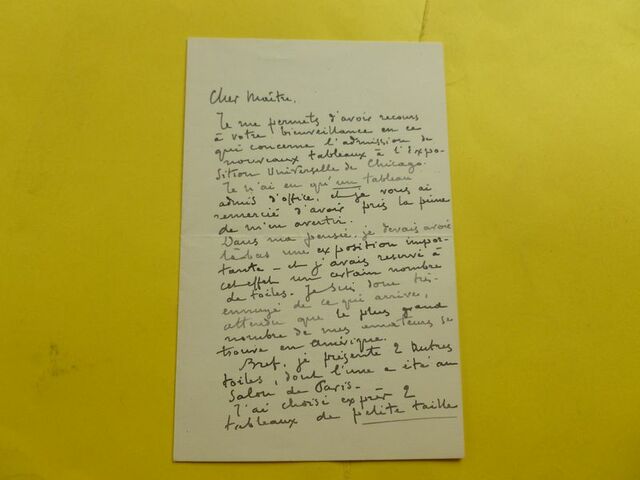 Cher Maître,
Je me permets d'avoir recours
à votre bienveillance en ce
qui concerne l'admission de
nouveaux tableaux à l'Expo-
sition Universelle de Chicago.
Je n'ai eu qu'un tableau
admis d'office, et je vous ai
remercié d'avoir pris la peine
de m'en avertir.
Dans ma pensée, je devais avoir
là bas une exposition impor-
tante - et j'avais reservé à
cet effet un certain nombre
de toiles. Je suis donc très-
ennuyé de ce qui arrive,
attendu que le plus grand
nombre de mes amateurs se
trouve en Amérique.
Bref, je présente 2 autres
toiles, dont l'une a été au
Salon de Paris -
J'ai choisi exprès 2
tableaux de petite taille